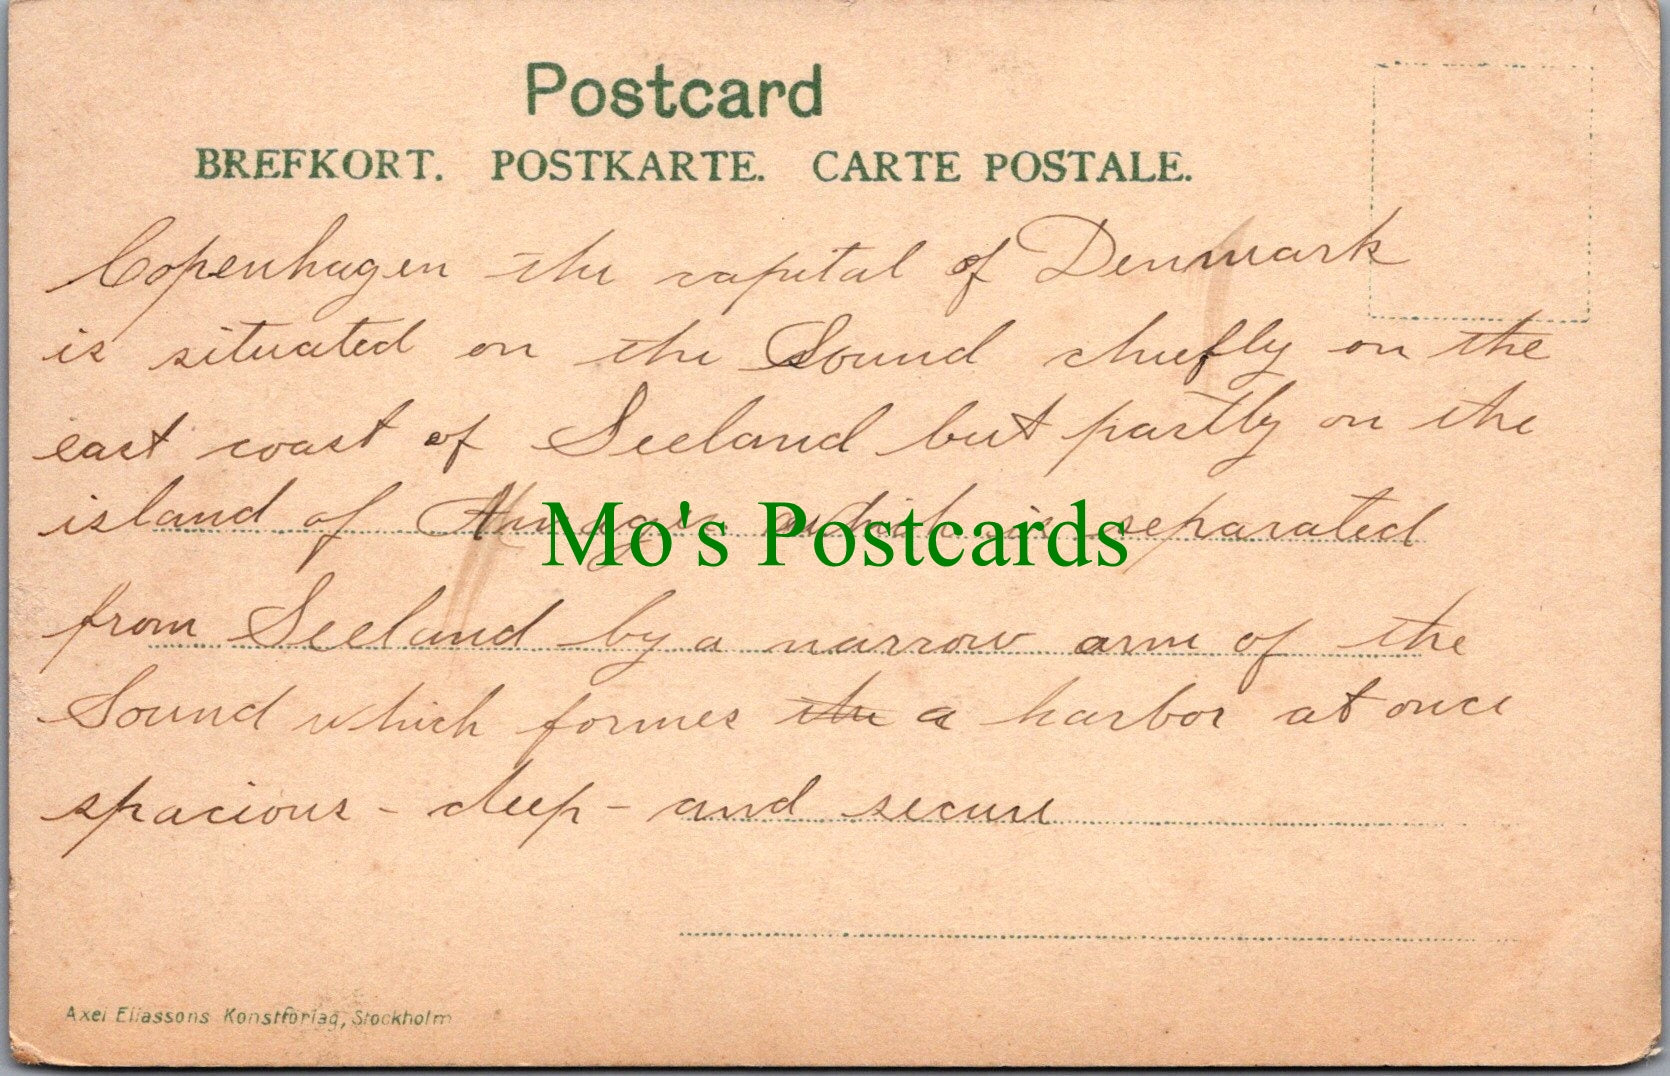 Postcard
BREFKORT. POSTKARTE. CARTE POSTALE.
Copenhagen the capital of Denmark
is situated on the Sound chiefly on the
east coast of Seeland but partly on the
island of which is separated
Mo's Postcards
from Seeland by a narrow arm of the
Sound which formes the a harbor at once
spacious - deep - and secure
Axel Eliassons Konstförlag, Stockholm